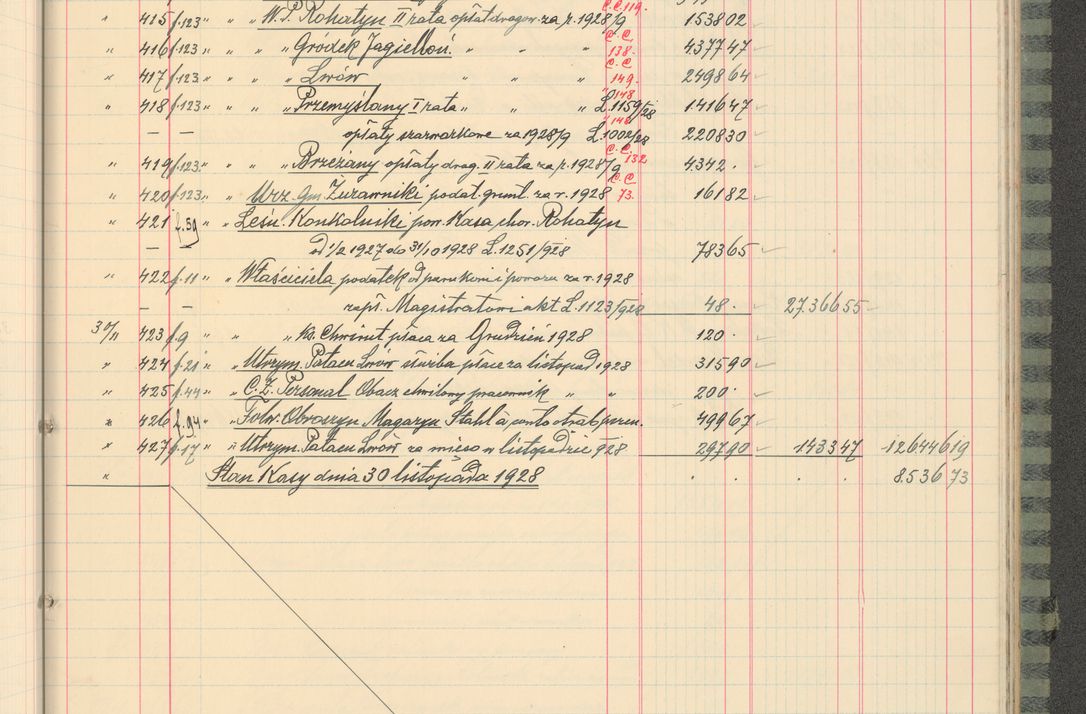 " 415 f.123 " " " W.P. Rohatyn II rata opłat drogow. za r. 1928/9 C.C. 119. 1538 02
" 416 f.123 " " " Gródek Jagielloń. " " " C.C. 138. 4377 47
" 417 f.123 " " " Lwów " " " C.C. 149. 2498 64
" 418 f.123 " " " Przemyślany I rata " " " L. 1159/28 148 1416 47
— — opłaty szarwarkowe za 1928/9 L. 1002/28 2208 30
" 419 f.123 " " " Brzeżany opłaty drog. II rata za r. 1928/9 C.C. 132 4342 .
" 420 f.123 " " Urz. gm. Żurawniki podat. grunt. za r. 1928 C.C. 73. 161 82
" 421 f.59 " " Leśn. Konkolniki pow. Kasa chor. Rohatyn
— od 1/2 1927 do 31/10 1928 L. 1251/928 783 65
" 422 f.11 " " Właściciela podatek od parukoni i powozu za r. 1928
— — Magistratowi akt L. 1123/928 48 . 27366 55
30/11 423 f.9 " " " Ks. Chwirut płaca za Grudzień 1928 120 .
" 424 f.21 " " Utrzym. Pałacu Lwów służba płace za listopad 1928 315 90
" 425 f.44 " " C.Z. Personal Obacz chwilowy pracownik " " 200 .
" 426 f.94 " " Folw. Obroszyn Magazyn Stahl à conto otrąb pszen. 499 67
" 427 f.17 " " Utrzym. Pałacu Lwów za mięso w listopadzie 928 297 90 1433 47 126446 19
" Stan Kasy dnia 30 listopada 1928 . . . . 8536 73